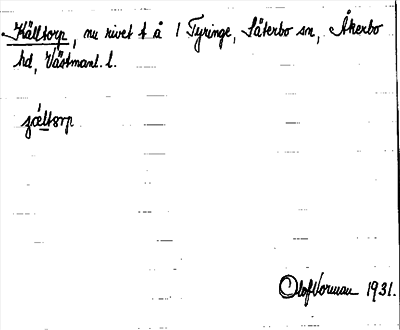 Källtorp, nu rivet t å 1 Tyringe, Säterbo sn, Åkerbo
hd, Västmanl. l.
Olof Vorman 1931.